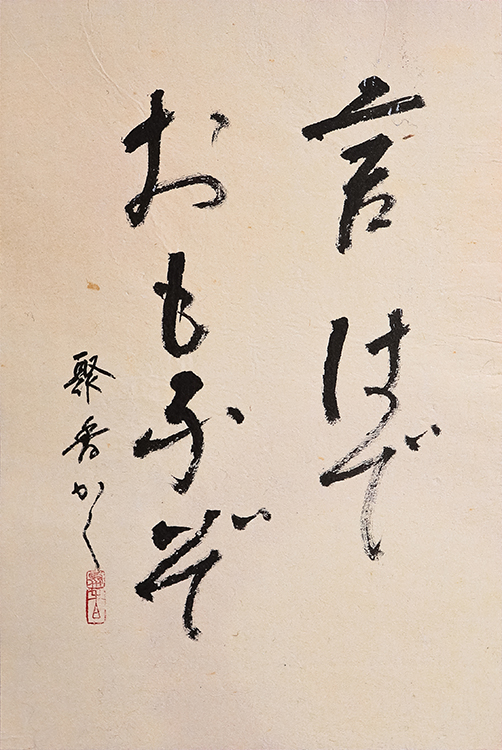 言はで
おもふぞ
聚香かく